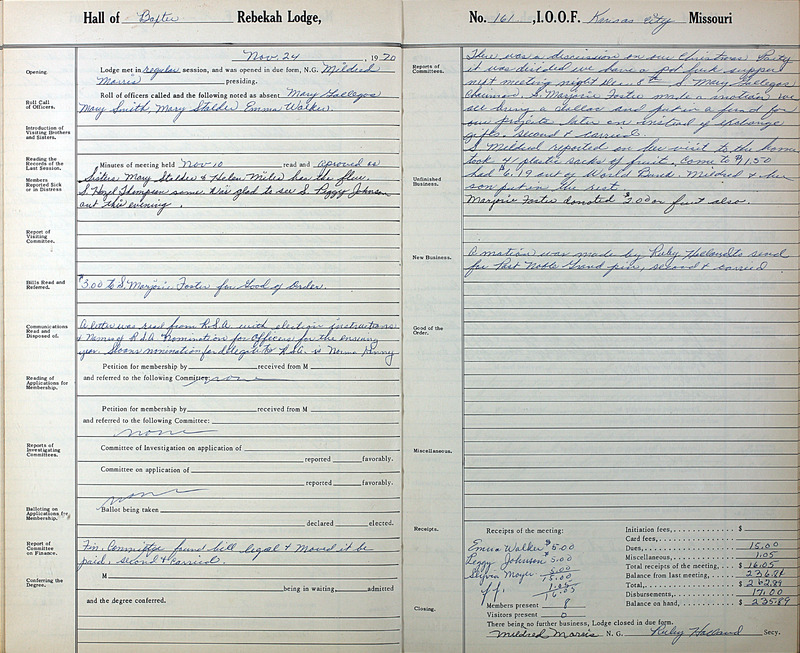 Hall of Baxter Rebekah Lodge,
Nov. 24, 1970
Opening.
Lodge met in regular session, and was opened in due form, N.G. Mildred
Morris presiding.
Roll Call of Officers.
Roll of officers called and the following noted as absent Mary Gallegos
Mary Smith, Mary Stalder, Emma Walker.
Introduction of Visiting Brothers and Sisters.
Reading the Records of the Last Session.
Minutes of meeting held Nov 10 read and approved as
Members Reported Sick or in Distress
Sisters Mary Stalder & Helen Miles has the flue.
S. Hazel Thompson same. Was glad to see S. Peggy Johnson
out this evening.
Report of Visiting Committee.
Bills Read and Referred.
$3.00 to S. Marjorie Foster for Good of Order.
Communications Read and Disposed of.
A letter was read from R.S.A. with election instructions
& Names of R.S.A. Nomination for Officers for the ensuing
year. nomination for delegate to R.S.A. is Norma
Petition for membership by received from M
Reading of Applications for Membership.
and referred to the following Committee: none
Petition for membership by received from M
and referred to the following Committee:
none
Reports of Investigating Committees.
Committee of Investigation on application of
reported favorably.
Committee on application of
reported favorably.
none
Balloting on Applications for Membership.
Ballot being taken
declared elected.
Report of Committee on Finance.
Fin. Committee found bill legal & Moved it be
paid, second & carried
Conferring the Degree.
M being in waiting, admitted
and the degree conferred.
No. 161, I.O.O.F. Kansas City Missouri
Reports of Committees.
There was a discussion on our Christmas Party
it was decided we have a pot luck supper
next meeting night Dec. 8th S. Mary Gallegos
Chairman. S. Marjorie Foster made a motion we
all bring a dollar and put in a fund for
our projects later on instead of exchange
gifts. second & carried.
S. Mildred reported on her visit to the home
took 4 plastic sacks of fruit, come to $1.50
Unfinished Business.
had $6.19 out of World Bank. Mildred & her
son put in the rest.
Marjorie Foster donated $2.00 on fruit also.
New Business.
A motion was made by Ruby Holland to send
for Past Noble Grand pin, second & carried
Good of the Order.
Miscellaneous.
Receipts.
Receipts of the meeting:
Emma Walker $5.00
Peggy Johnson 5.00
Sylvia Moyer 5.00
15.00
1.05
16.05
Members present 8
Visitors present 0
Initiation fees, $
Card fees,
Dues, 15.00
Miscellaneous, 1.05
Total receipts of the meeting, $ 16.05
Balance from last meeting, 236.84
Total, $
Disbursements, 17.00
Balance on hand, $ 235.89
Closing.
There being no further business, Lodge closed in due form.
Mildred Morris N. G. Ruby Holland Secy.